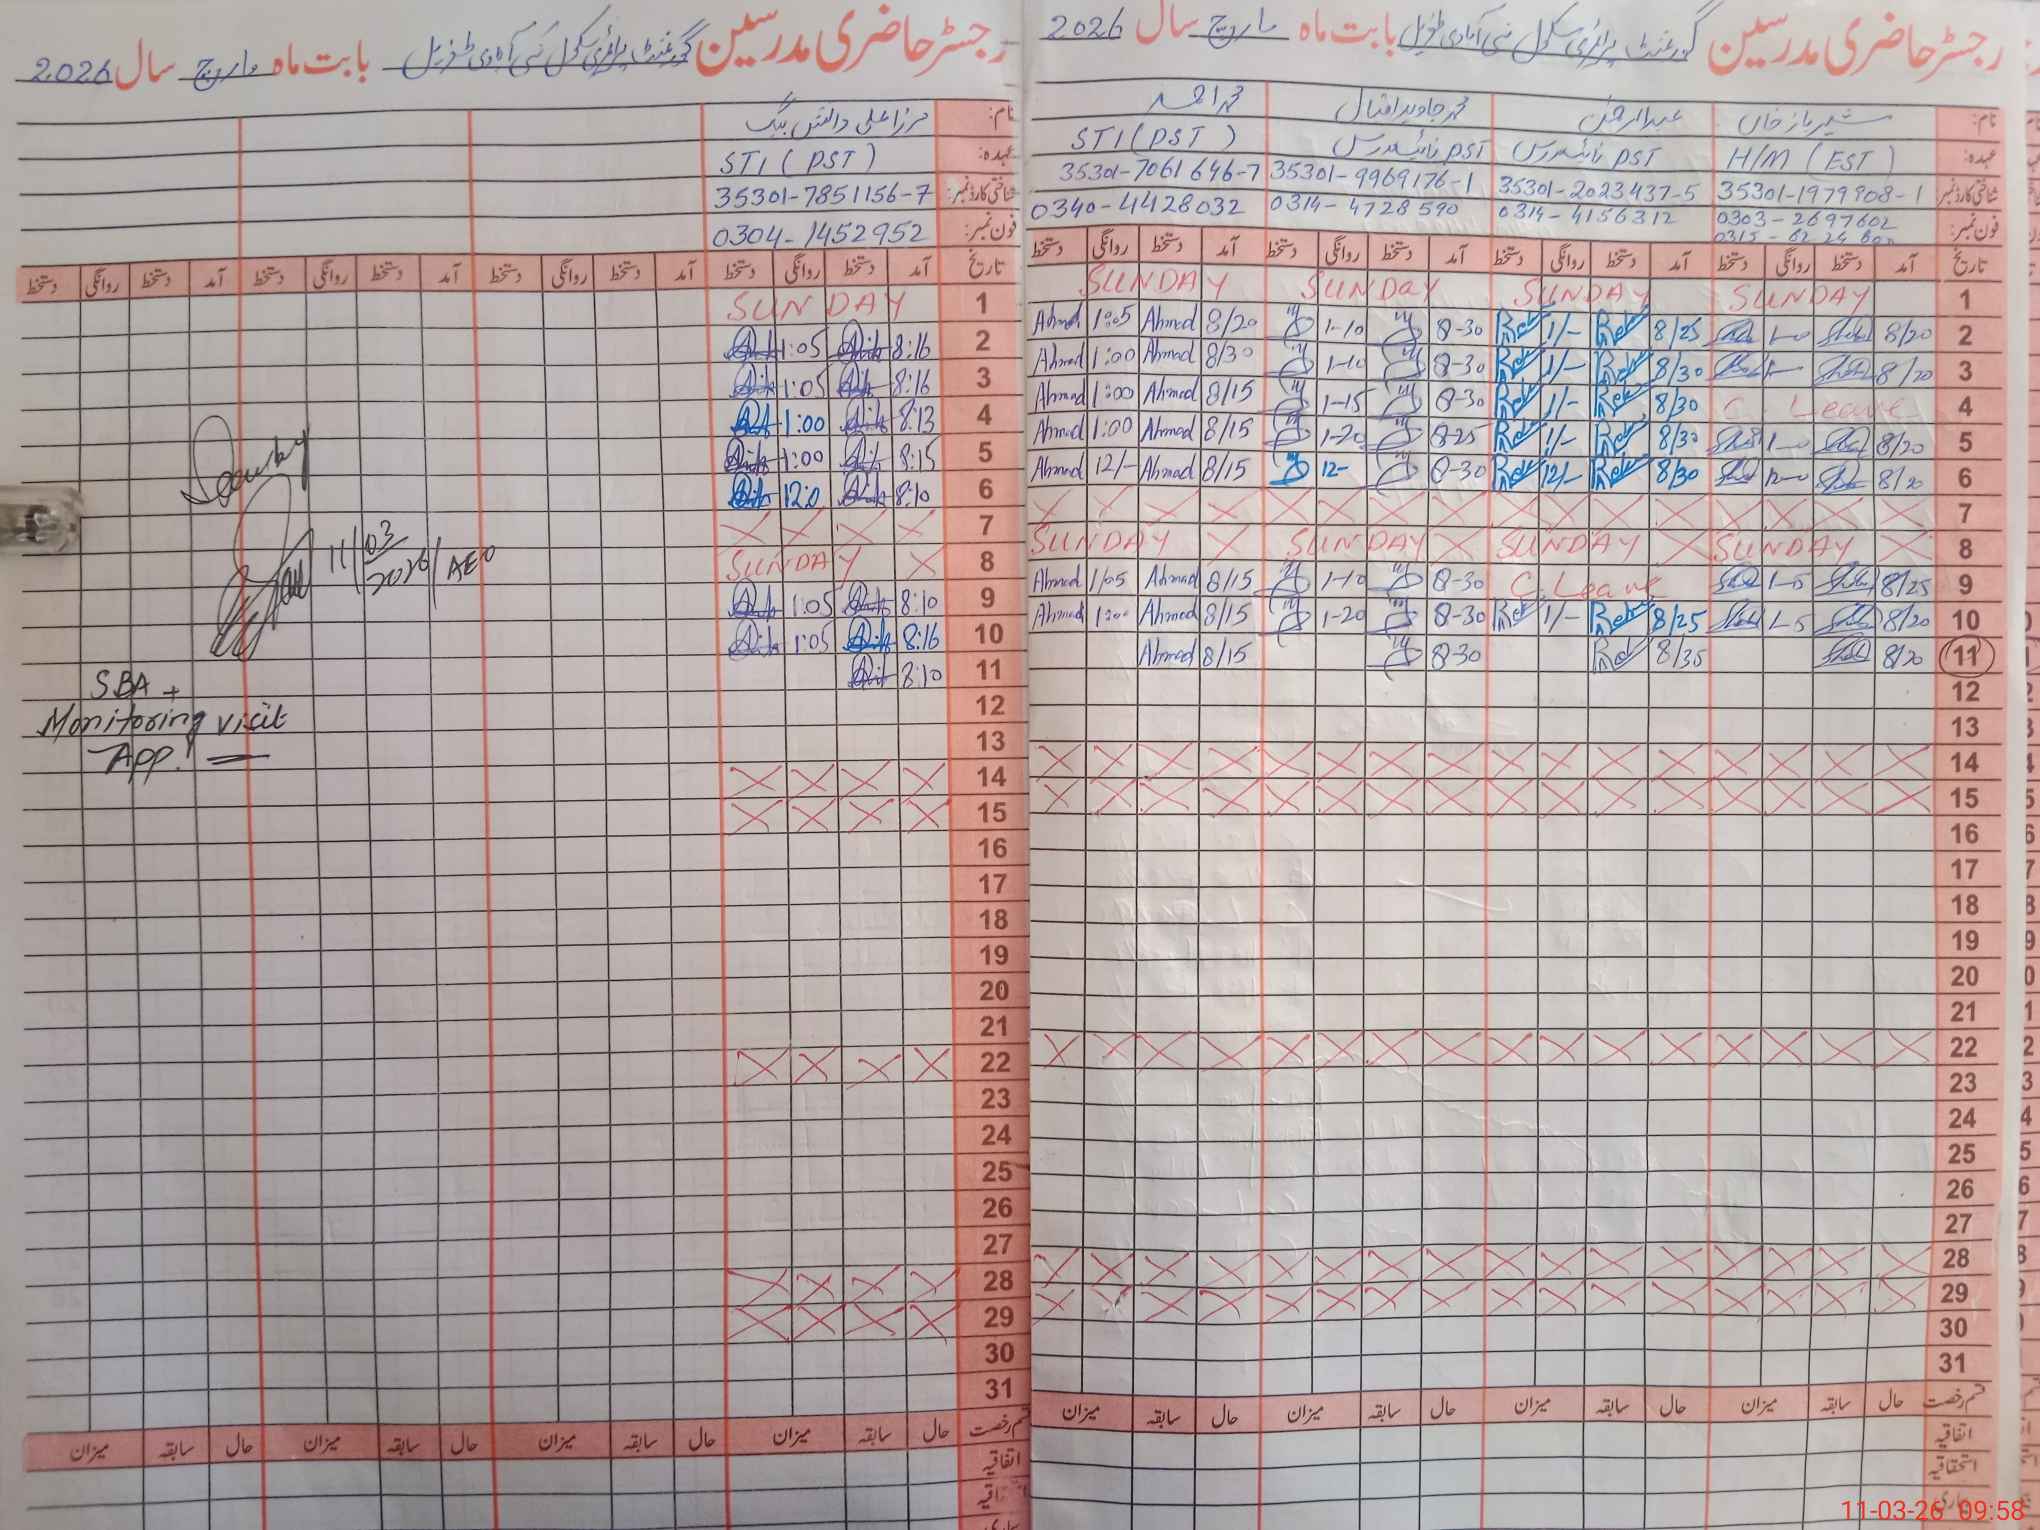 رجسٹر حاضری مدرسین گورنمنٹ پرائمری سکول نئی آبادی طویل بابت ماہ مارچ سال 2026
نام: شہباز خاں عبدالرحمن محمد جاوید اقبال محمد احمد
عہدہ: H/M (EST) PST نائب مدرس PST نائب مدرس ST1 (PST)
شناختی کارڈ نمبر: 35301-1979908-1 35301-2023437-5 35301-9969176-1 35301-7061646-7
فون نمبر: 0303-2697602 0314-4156312 0314-4728590 0340-4428032
تاریخ آمد دستخط روانگی دستخط آمد دستخط روانگی دستخط آمد دستخط روانگی دستخط آمد دستخط روانگی دستخط
1 SUNDAY SUNDAY SUNDAY SUNDAY
2 8/20 1-0 8/25 Reh 1/- Reh 8-30 1-10 8/20 Ahmad 1:05 Ahmad
3 8/20 8/30 Reh 1/- Reh 8-30 1-10 8/30 Ahmad 1:00 Ahmad
4 C. Leave 8/30 Reh 1/- Reh 8-30 1-15 8/15 Ahmad 1:00 Ahmad
5 8/20 1-0 8/30 Reh 1/- Reh 8-25 1-20 8/15 Ahmad 1:00 Ahmad
6 8/20 12-0 8/30 Reh 12/- Reh 8-30 12- 8/15 Ahmad 12/- Ahmad
7 X X X X X X X X X X X X X X X X
8 X SUNDAY X SUNDAY X SUNDAY X SUNDAY
9 8/25 1-5 C. Leave 8-30 1-10 8/15 Ahmad 1/05 Ahmad
10 8/20 1-5 8/25 Reh 1/- Reh 8-30 1-20 8/15 Ahmad 1:00 Ahmad
11 8/20 8/35 Reh 8-30 8/15 Ahmad
12
13
14 X X X X X X X X X X X X X X X X
15 X X X X X X X X X X X X X X X X
16
17
18
19
20
21
22 X X X X X X X X X X X X X X X X
23
24
25
26
27
28 X X X X X X X X X X X X X X X X
29 X X X X X X X X X X X X X X X X
30
31
قسم رخصت حال سابقہ میزان حال سابقہ میزان حال سابقہ میزان حال سابقہ میزان
اتفاقیہ
استحقاقیہ
رجسٹر حاضری مدرسین گورنمنٹ پرائمری سکول نئی آبادی طویل بابت ماہ مارچ سال 2026
نام: مرزا علی دانش بیگ
عہدہ: ST1 (PST)
شناختی کارڈ نمبر: 35301-7851156-7
فون نمبر: 0304-1452952
تاریخ آمد دستخط روانگی دستخط آمد دستخط روانگی دستخط آمد دستخط روانگی دستخط آمد دستخط روانگی دستخط
1 SUNDAY
2 8:16 1:05
3 8:16 1:05
4 8:13 1:00
5 8:15 1:00
6 8:10 12:0
7 X X X X
8 X SUNDAY
9 8:10 1:05
10 8:16 1:05
11 8:10
12
13
14 X X X X
15 X X X X
16
17
18
19
20
21
22 X X X X
23
24
25
26
27
28 X X X X
29 X X X X
30
31
قسم رخصت حال سابقہ میزان حال سابقہ میزان حال سابقہ میزان حال سابقہ میزان
اتفاقیہ
11/03/2026/AEO
SBA +
Monitoring visit
App.
11-03-26 09:58